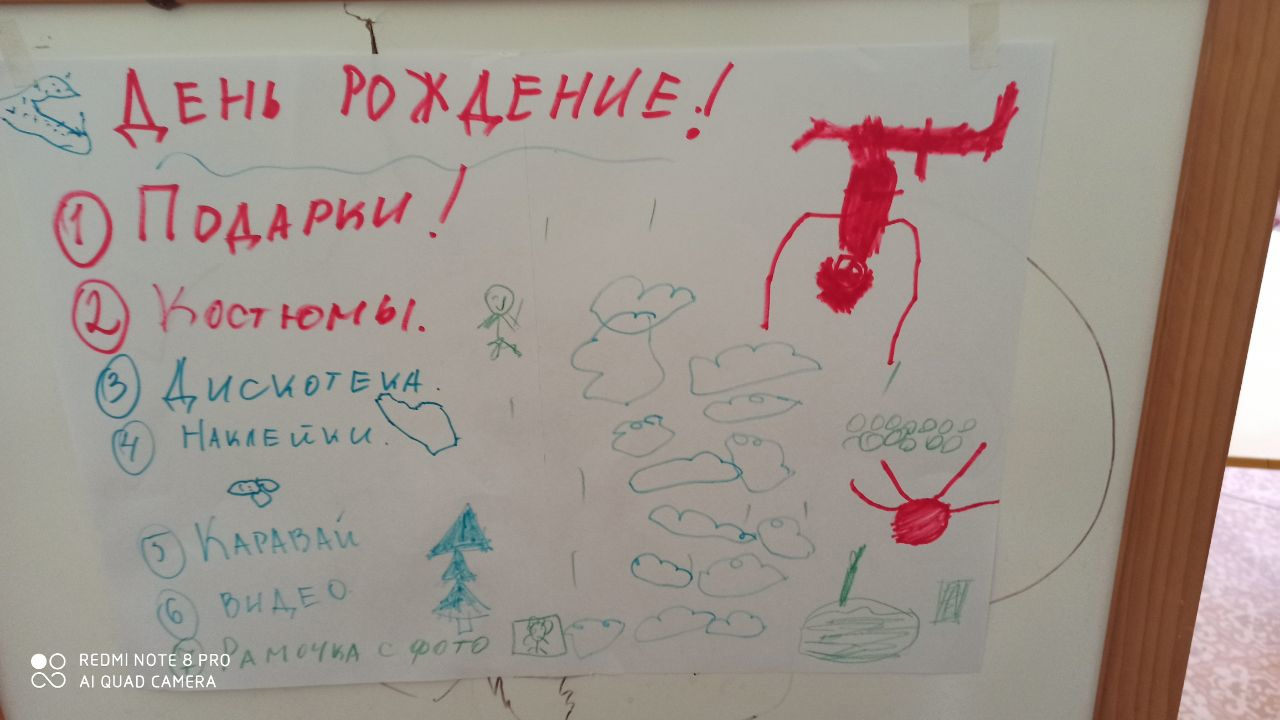 ДЕНЬ РОЖДЕНИЕ!
1 ПОДАРКИ!
2 КОСТЮМЫ.
3 ДИСКОТЕКА.
4 НАКЛЕЙКИ.
5 КАРАВАЙ
6 ВИДЕО
7 РАМОЧКА С ФОТО
REDMI NOTE 8 PRO
AI QUAD CAMERA